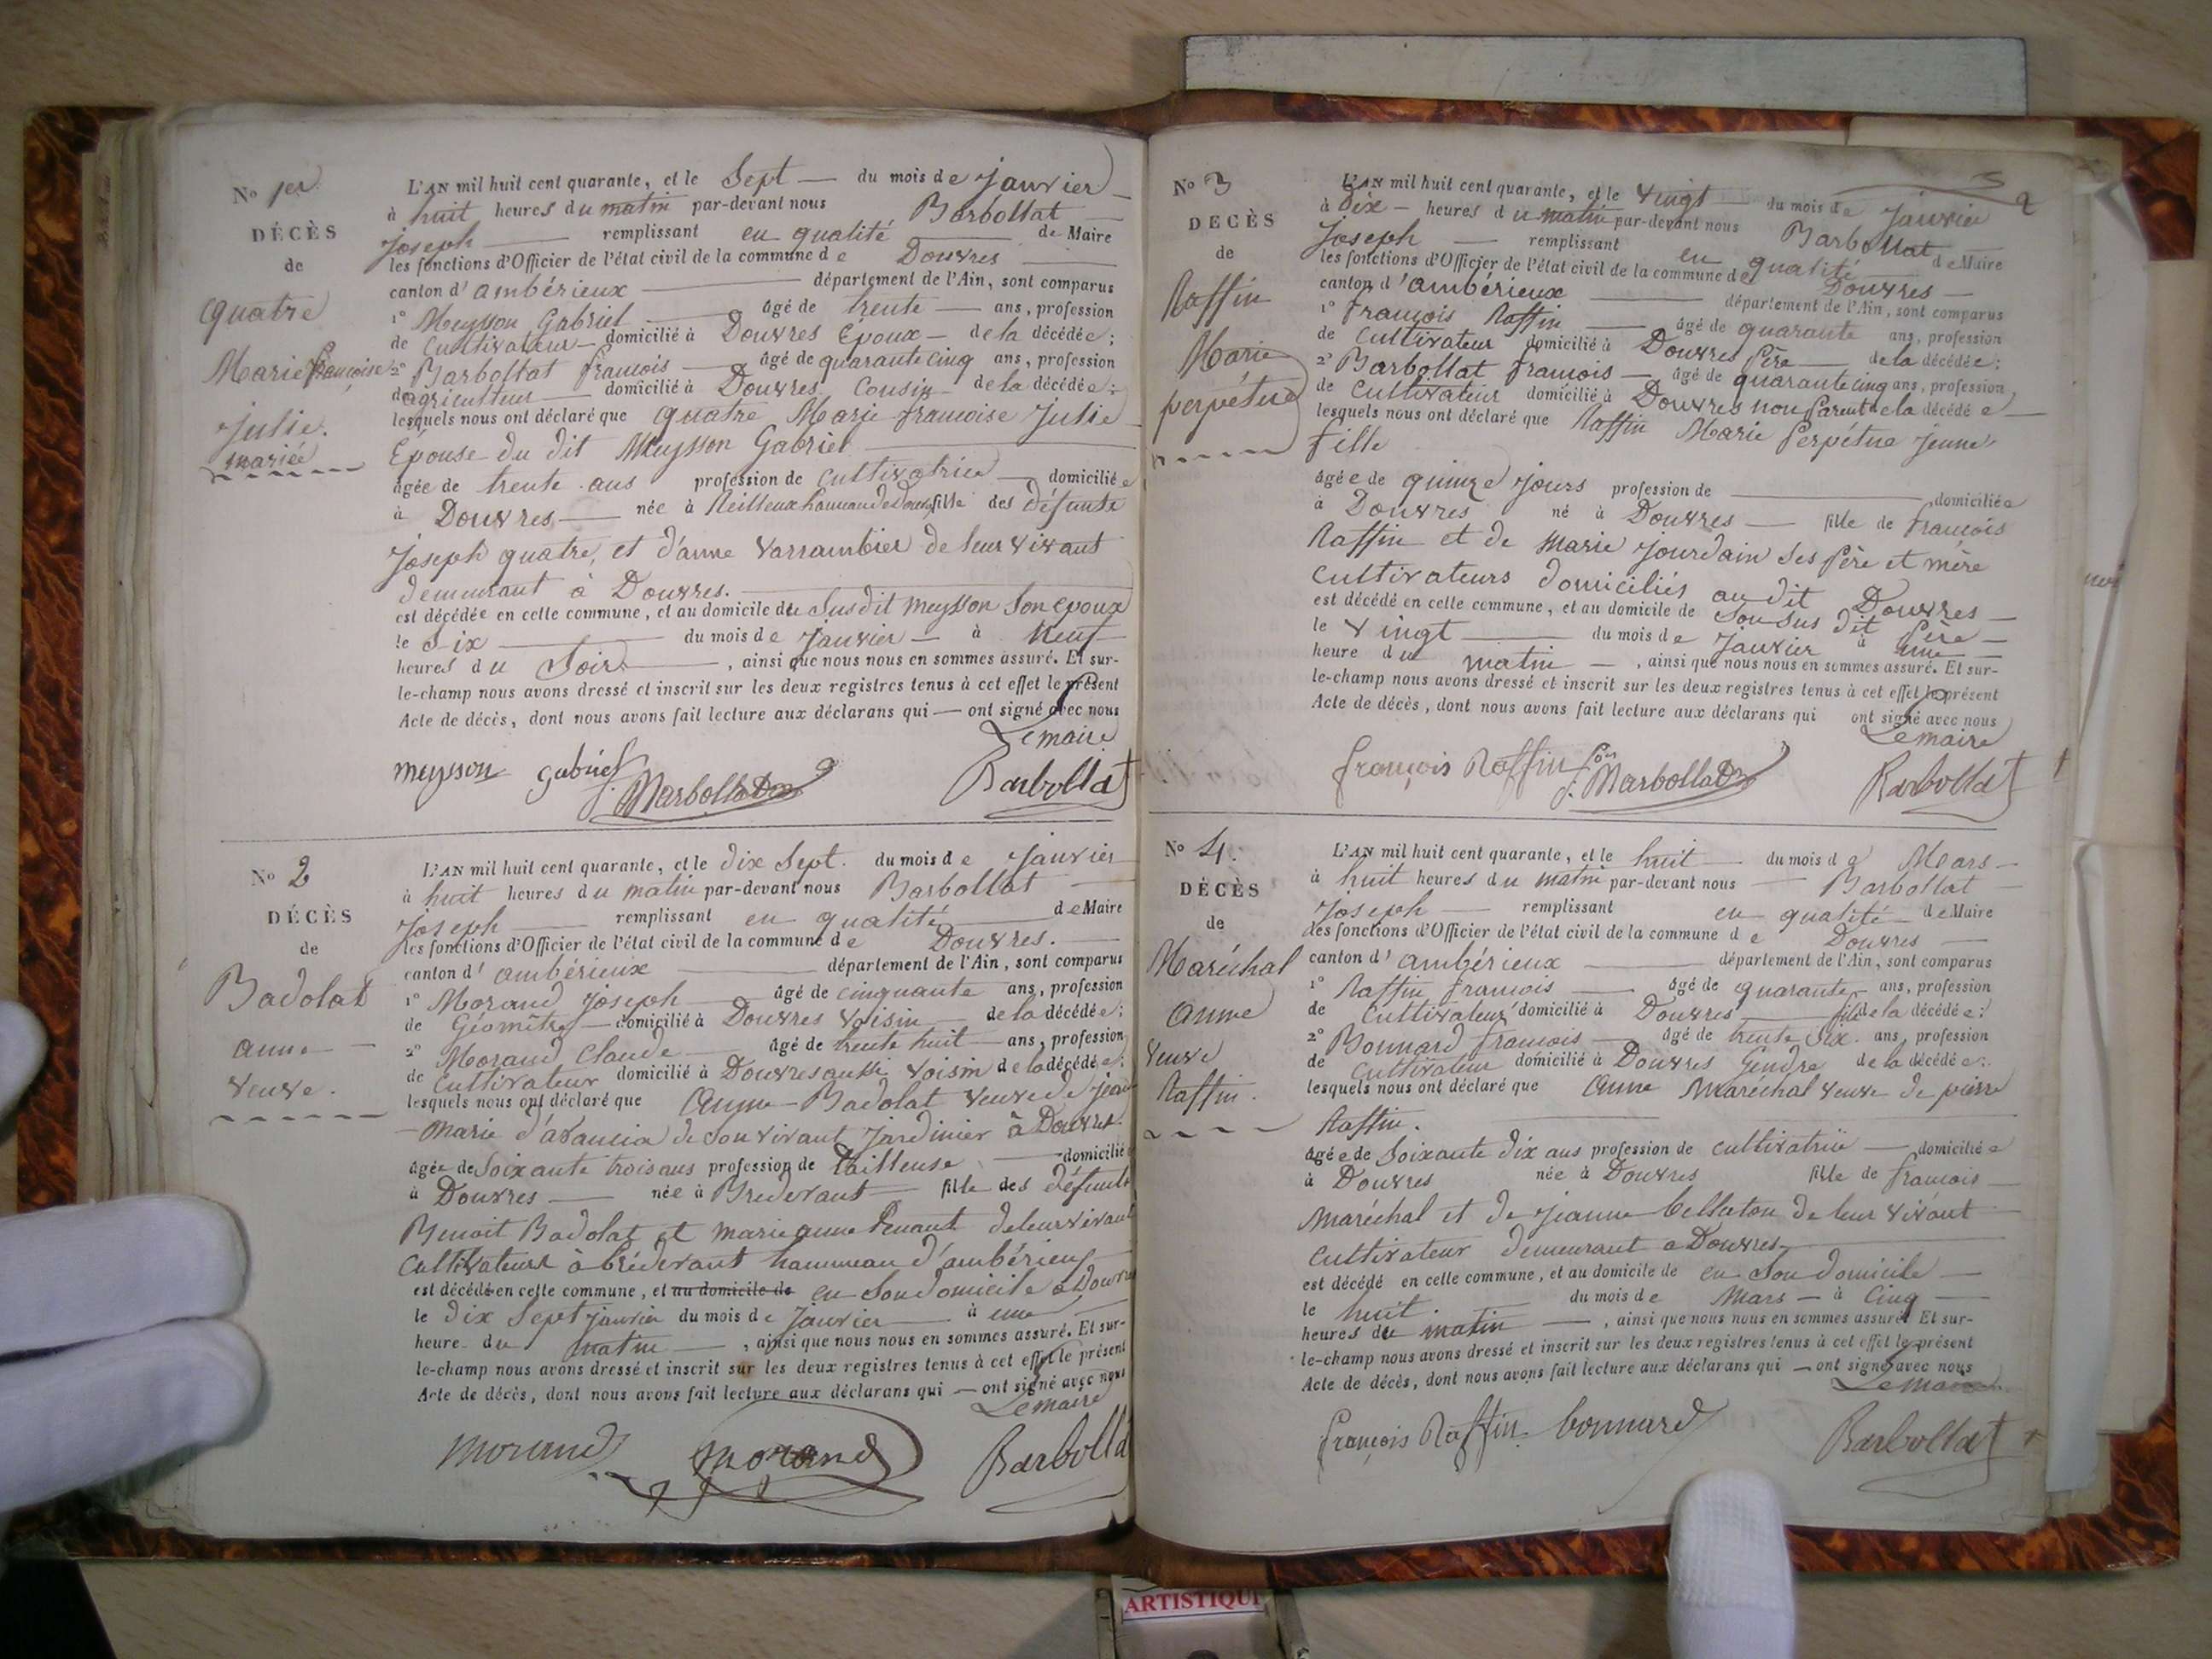 No 1er
DÉCÈS
de
quatre
Marie françoise
julie.
mariée
L'AN mil huit cent quarante, et le Sept du mois de janvier
à huit heures du matin par-devant nous Barbollat
Joseph remplissant en qualité de Maire
les fonctions d'Officier de l'état civil de la commune de Douvres
canton d'ambérieux département de l'Ain, sont comparus
1° Meysson Gabriel âgé de trente ans, profession
de Cultivateur domicilié à Douvres Epoux de la décédée;
2° Barbollat francois âgé de quarante cinq ans, profession
d'agriculteur domicilié à Douvres Cousin de la décédée;
lesquels nous ont déclaré que quatre Marie francoise Julie
Épouse du dit Meysson Gabriel
âgée de trente ans profession de Cultivatrice domiciliée
à Douvres née à hameau de Douvres fille des défunts
Joseph quatre, et d'anne Varrambier de leur vivant
demeurant à Douvres.
est décédée en celle commune, et au domicile du Susdit meysson Son epoux
le Six du mois de janvier à neuf
heures du Soir, ainsi que nous nous en sommes assuré. Et sur-
le-champ nous avons dressé et inscrit sur les deux registres tenus à cet effet le présent
Acte de décès, dont nous avons fait lecture aux déclarans qui ont signé avec nous
Lemaire
meysson gabriel f. Barbollat Barbollat
No 2
DÉCÈS
de
Badolat
anne
veuve.
L'AN mil huit cent quarante, et le dix Sept. du mois de Janvier
à huit heures du matin par-devant nous Barbollat
Joseph remplissant en qualité de Maire
les fonctions d'Officier de l'état civil de la commune de Douvres.
canton d'ambérieux département de l'Ain, sont comparus
1° Morand joseph âgé de cinquante ans, profession
de Géomêtre domicilié à Douvres Voisin de la décédée;
2° Morand Claude âgé de trente huit ans, profession
de Cultivateur domicilié à Douvres aussi Voisin de la décédée;
lesquels nous ont déclaré que Anne Badolat Veuve de Jean
marie de Son vivant Jardinier à Douvres.
âgée de Soixante trois ans profession de tailleuse domiciliée
à Douvres née à Brederant fille des défunts
Benoit Badolat et marie anne de leur vivant
Cultivateurs à bréderant hammeau d'ambérieux
est décédé en celle commune, et au domicile de en Son domicile à Douvres
le dix Sept janvier du mois de janvier à une
heure du matin, ainsi que nous nous en sommes assuré. Et sur-
le-champ nous avons dressé et inscrit sur les deux registres tenus à cet effet le présent
Acte de décès, dont nous avons fait lecture aux déclarans qui ont signé avec nous
Lemaire
morand morand Barbolla
2
No 3
DÉCÈS
de
Raffin
Marie
perpétue
L'AN mil huit cent quarante, et le Vingt du mois de Janvier
à dix heures du matin par-devant nous Barbollat
Joseph remplissant en qualité de Maire
les fonctions d'Officier de l'état civil de la commune de Douvres
canton d'ambérieux département de l'Ain, sont comparus
1° françois Raffin âgé de quarante ans, profession
de Cultivateur domicilié à Douvres Père de la décédée;
2° Barbollat francois âgé de quarante cinq ans, profession
de Cultivateur domicilié à Douvres non Parent de la décédée
lesquels nous ont déclaré que Raffin Marie Perpétue jeune
fille
âgée de quinze jours profession de domiciliée
à Douvres né à Douvres fille de francois
Raffin et de Marie jourdain Ses Père et mère
Cultivateurs domiciliés au dit Douvres
est décédé en celle commune, et au domicile de Son Sus dit Père
le Vingt du mois de Janvier à une
heure du matin, ainsi que nous nous en sommes assuré. Et sur-
le-champ nous avons dressé et inscrit sur les deux registres tenus à cet effet le présent
Acte de décès, dont nous avons fait lecture aux déclarans qui ont signé avec nous
Lemaire
françois Raffin f. Barbollat Barbollat
No 4.
DÉCÈS
de
Maréchal
anne
veuve
Raffin.
L'AN mil huit cent quarante, et le huit du mois de Mars
à huit heures du matin par-devant nous Barbollat
Joseph remplissant en qualité de Maire
les fonctions d'Officier de l'état civil de la commune de Douvres
canton d'ambérieux département de l'Ain, sont comparus
1° Raffin francois âgé de quarante ans, profession
de Cultivateur domicilié à Douvres fils de la décédée;
2° Bonnard francois âgé de trente Six. ans, profession
de Cultivateur domicilié à Douvres Gendre de la décédée;
lesquels nous ont déclaré que Anne Maréchal veuve de pierre
Raffin.
âgée de Soixante dix ans profession de cultivatrice domiciliée
à Douvres née à Douvres fille de francois
Maréchal et de jeanne de leur vivant
Cultivateur demeurant a Douvres
est décédé en celle commune, et au domicile de en Son domicile
le huit. du mois de Mars à Cinq
heures du matin, ainsi que nous nous en sommes assuré. Et sur-
le-champ nous avons dressé et inscrit sur les deux registres tenus à cet effet le présent
Acte de décès, dont nous avons fait lecture aux déclarans qui ont signé avec nous
Lemaire
françois Raffin bonnard Barbollat
ARTISTIQUE